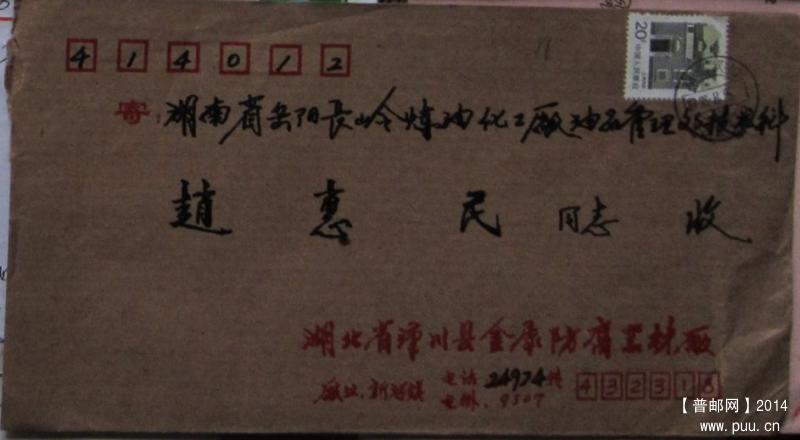 414012
20分
中国人民邮政
寄：湖南省岳阳長岭炼油化工厰油品管理处技术科
趙惠民 同志 收
湖北省漳川县金康防腐器材厰
厰址：新河镇
电话 24974转 432318
电挂：9507
【普邮网】2014
www.puu.cn